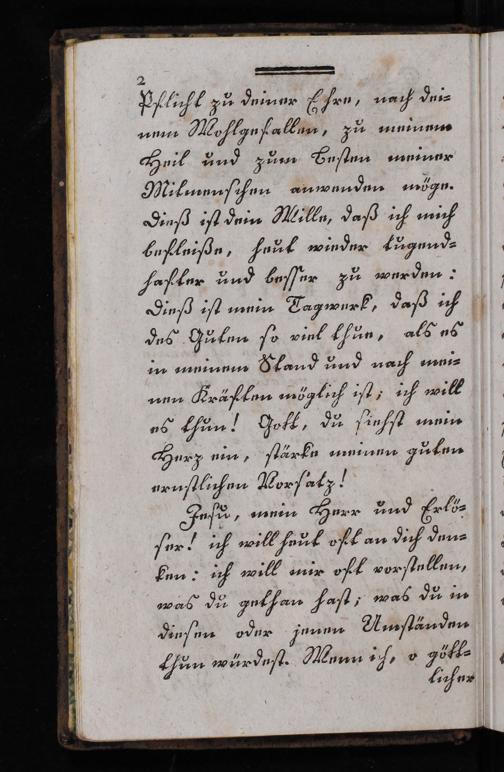 2
Pflicht zu deiner Ehre, nach dei=
nem Wohlgefallen, zu meinem
Heil und zum Besten meiner
Mitmenschen anwenden möge.
Dieß ist dein Wille, daß ich mich
befleiße, heut wieder tugend=
hafter und besser zu werden:
Dieß ist mein Tagwerk, daß ich
des Guten so viel thue, als es
in meinem Stand und nach mei=
nen Kräften möglich ist; ich will
es thun! Gott, du siehst mein
Herz ein, stärke meinen guten
ernstlichen Vorsatz!
Jesu, mein Herr und Erlö=
ser! ich will heut oft an dich den=
ken: ich will mir oft vorstellen,
was du gethan hast; was du in
diesen oder jenen Umständen
thun würdest. Wenn ich, o gött=
licher